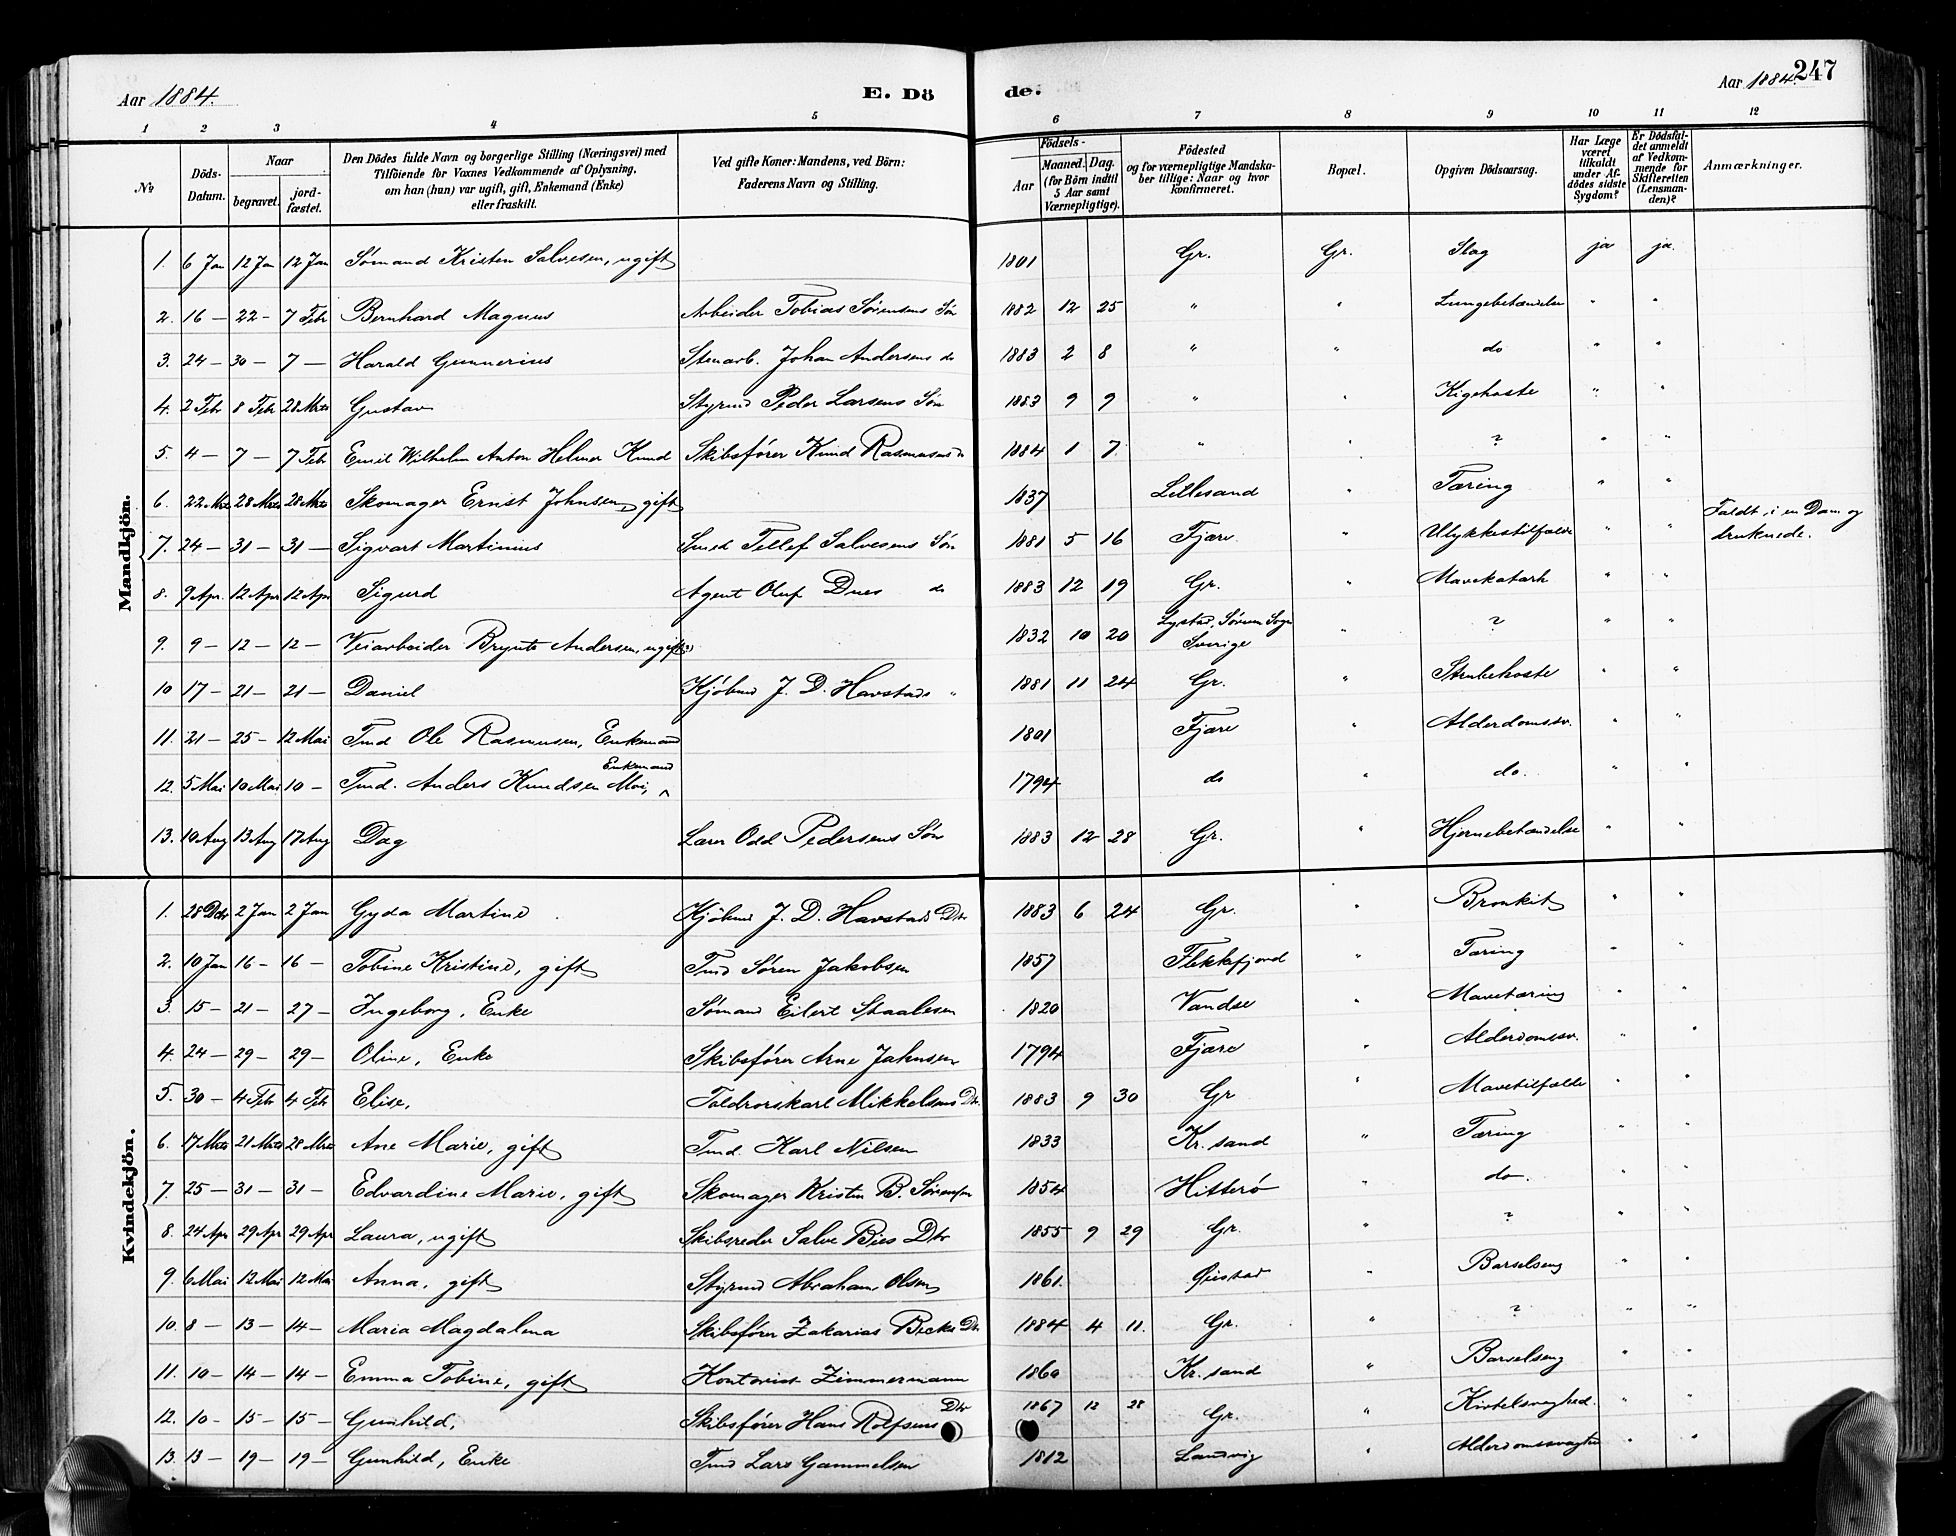 Aar 1884. E. Dö de. Aar 1884. 247
1 2 3 4 5 6 7 8 9 10 11 12
No
Döds-Datum.
Naar
begravet. jord-fæstet.
Den Dödes fulde Navn og borgerlige Stilling (Næringsvei) med
Tilföiende for Voxnes Vedkommende af Oplysning,
om han (hun) var ugift, gift, Enkemand (Enke)
eller fraskilt.
Ved gifte Koner: Mandens, ved Börn:
Faderens Navn og Stilling.
Födsels-
Aar Maaned. Dag.
(for Börn indtil
5 Aar samt
Værnepligtige).
Födested
og for værnepligtige Mandska-
ber tillige: Naar og hvor
konfirmeret.
Bopæl.
Opgiven Dödsaarsag.
Har Læge
været
tilkaldt
under Af-
dödes sidste
Sygdom?
Er Dödsfal-
det anmeldt
af Vedkom-
mende for
Skifteretten
(Lensman-
den)?
Anmærkninger.
Mandkjön.
1. 6 Jan 12 Jan 12 Jan Sømand Kristen Salvesen, ugift 1801 Gr. Gr. Slag ja ja.
2. 16 — 22 — 7 Febr Bernhard Magnus Arbeider Tobias Sørensens Søn 1882 12 25 " " Lungebetændelse " "
3. 24 — 30 — 7 — Harald Gunnerius Stenarb. Johan Andersens do 1883 2 8 " " do " "
4. 2 Febr 8 Febr 28 Mrts Gustav Styrmd Peder Larsens Søn 1883 9 9 " " Kighoste " "
5. 4 — 7 — 7 Febr Emil Wilhelm Anton Helmer Knud Skibsfører Knud Rasmusens 1884 1 7 " " ? " "
6. 22 Mrts 28 Mrts 28 Mrts Skomager Ernst Johnsen, gift 1837 Lillesand " Tæring " "
7. 24 — 31 — 31 — Sigvart Martinius Smed Tellef Salvesens Søn 1881 5 16 Fjære " Ulykkestilfælde " " Faldt i en Dam og
druknede.
8. 9 Apr. 12 Apr 12 Apr Sigurd Agent Oluf Dues do 1883 12 19 Gr. " Mavekatarh " "
9. 9 — 12 — 12 — Veiarbeider Brynte Andersen, ugift 1832 10 20 Sogn
Sverige " ? " "
10 17 — 21 — 21 — Daniel Kjøbmd J. D. Havstads " 1881 11 24 Gr. " Strubehoste " "
11. 21 — 25 — 12 Mai Tmd Ole Rasmusen, Enkemand 1801 Fjære " Alderdomssv. " "
12. 5 Mai 10 Mai 10 — Tmd. Anders Knudsen Moi, Enkemand 1794 do " do. " "
13. 10 Aug 13 Aug 17 Aug Dag Lærer Odd Pedersens Søn 1883 12 28 Gr. " Hjernebetændelse " "
Kvindekjön.
1. 28 Dcbr 2 Jan 2 Jan Gyda Martine Kjøbmd J. D. Havstads Dtr 1883 6 24 Gr. " Bronkit " "
2. 10 Jan 16 — 16 — Tobine Kristine, gift Tmd Søren Jakobsen 1857 Flekkefjord " Tæring " "
3. 15 — 21 — 27 — Ingeborg, Enke Sømand Eilert Staalesen 1820 Vandse " Mavetæring " "
4. 24 — 29 — 29 — Oline, Enke Skibsfører Arne Jahnsen 1794 Fjære " Alderdomssv. " "
5. 30 — 4 Febr 4 Febr Elise, Toldrorskarl Mikkelsens Dtr. 1883 9 30 Gr " Mavetilfælde " "
6. 17 Mrts 21 Mrts 28 Mrts Ane Marie, gift Tmd. Karl Nilsen 1833 Kr.sand " Tæring " "
7 25 — 31 — 31 — Edvardine Marie, gift Skomager Kristen B. Sørensen 1854 Hitterø " do. " "
8. 24 Apr 29 Apr 29 Apr Laura, ugift Skibsreder Salve Bies Dtr 1855 9 29 Gr. " ? " "
9. 6 Mai 12 Mai 12 Mai Anna, gift Styrmd Abraham Olsen 1861. Øiestad " Barselseng " "
10. 8 — 13 — 14 — Maria Magdalena Skibsfører Zakarias Becks Dtr. 1884 4 11. Gr. " ? " "
11. 10 — 14 — 14 — Emma Tobine, gift Kontorist Zimmermann 1860 Kr.sand " Barselseng " "
12. 10 — 15 — 15 — Gunhild, Skibsfører Hans Rolfsens Dtr 1867 12 28 Gr. " Kirtelsvaghed. " "
13. 13 — 19 — 19 — Gunhild, Enke Tmd Lars Gammelsen 1812 Landvig " Alderdomssvaghed " "